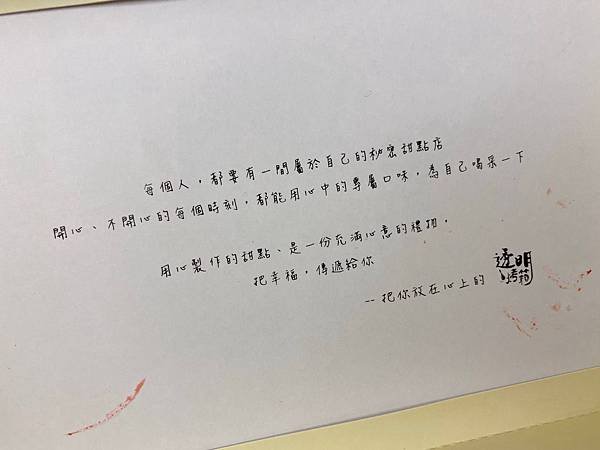 每個人，都要有一間屬於自己的秘密甜點店
開心、不開心的每個時刻，都能用心中的專屬口味，為自己喝采一下
用心製作的甜點、是一份充滿心意的禮物，
把幸福，傳遞給你
-- 把你放在心上的 透明烤箱